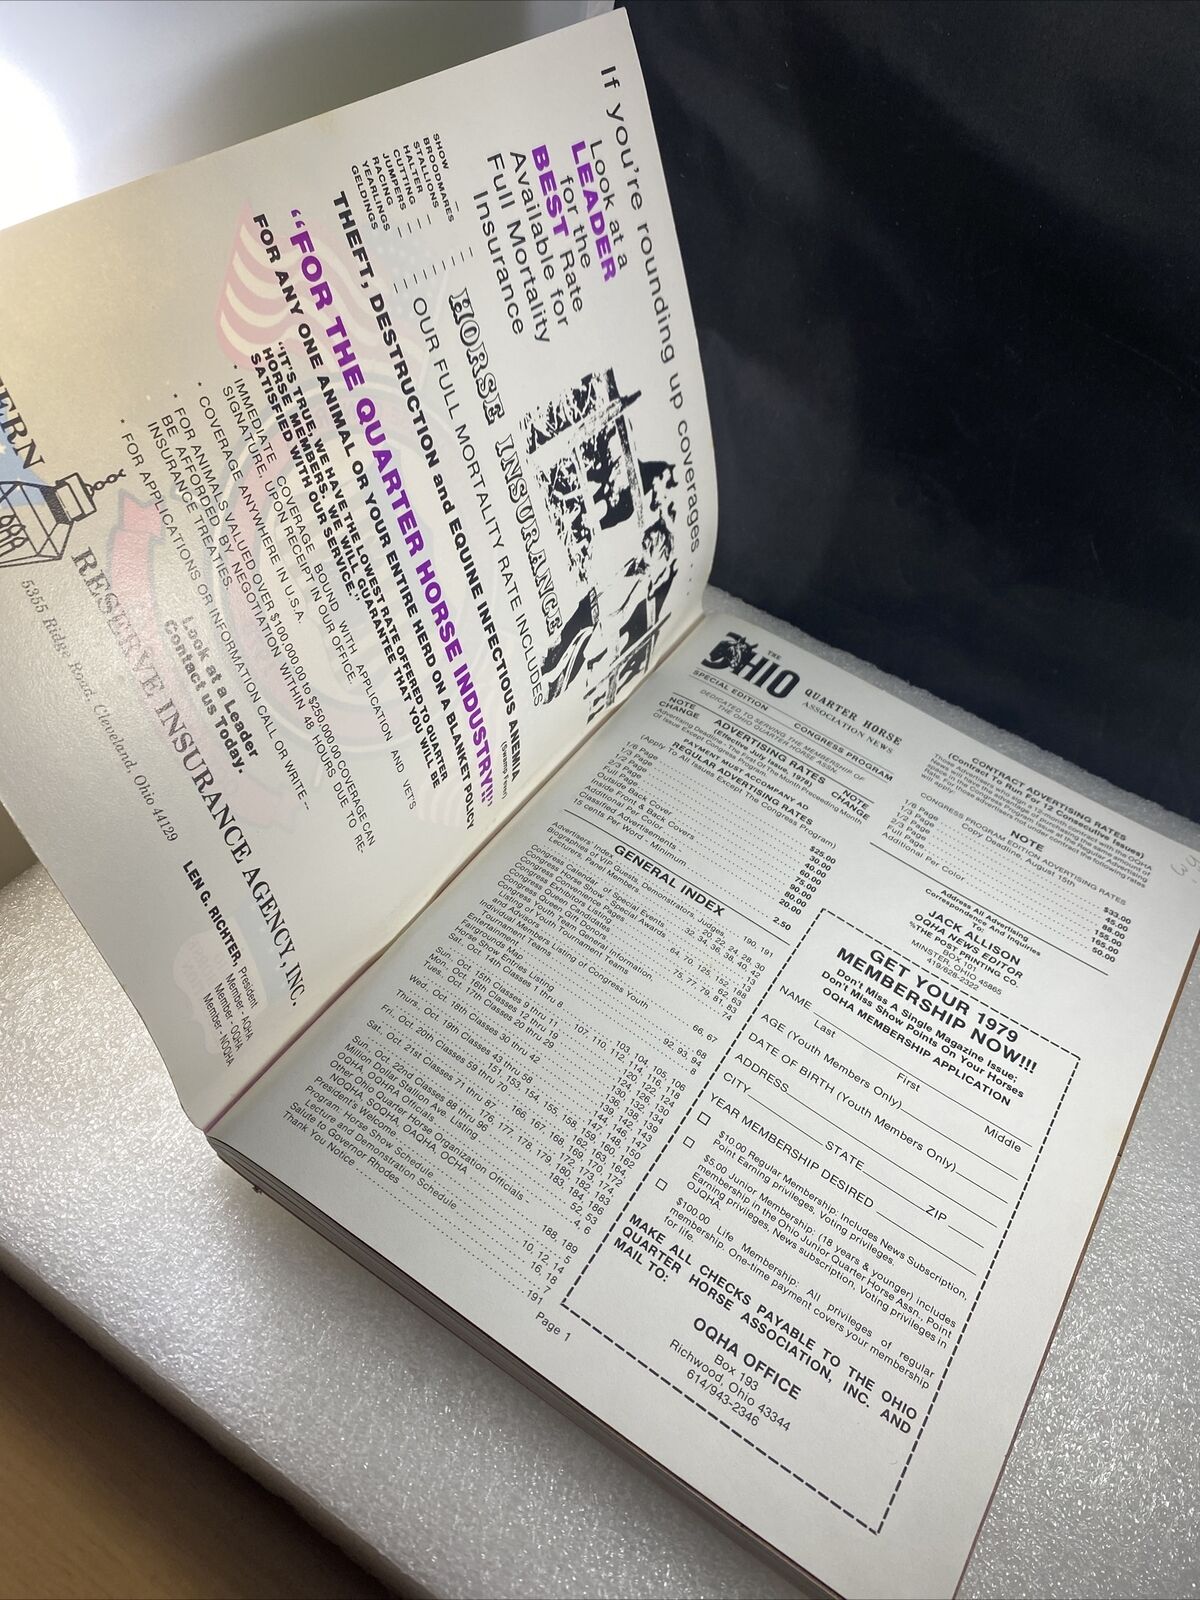 If you're rounding up coverages . . .
Look at a
LEADER
for the
BEST Rate
Available for
Full Mortality
Insurance
HORSE INSURANCE
SHOW
BROODMARES
STALLIONS
HALTER
CUTTING
JUMPERS
RACING
YEARLINGS
GELDINGS
OUR FULL MORTALITY RATE INCLUDES
THEFT, DESTRUCTION and EQUINE INFECTIOUS ANEMIA
(Swamp Fever)
"FOR THE QUARTER HORSE INDUSTRY!!!
FOR ANY ONE ANIMAL OR YOUR ENTIRE HERD ON A BLANKET POLICY
"IT'S TRUE, WE HAVE THE LOWEST RATE OFFERED TO QUARTER
HORSE MEMBERS. WE WILL GUARANTEE THAT YOU WILL BE
SATISFIED WITH OUR SERVICE."
• IMMEDIATE COVERAGE BOUND WITH APPLICATION AND VET'S
SIGNATURE UPON RECEIPT IN OUR OFFICE.
• COVERAGE ANYWHERE IN U.S.A.
• FOR ANIMALS VALUED OVER $100,000.00 to $250,000.00 COVERAGE CAN
BE AFFORDED BY NEGOTIATION WITHIN 48 HOURS DUE TO RE-
INSURANCE TREATIES.
• FOR APPLICATIONS OR INFORMATION CALL OR WRITE --
Look at a Leader
Contact us Today.
ERN
RESERVE INSURANCE AGENCY, INC.
5355 Ridge Road, Cleveland, Ohio 44129
LEN G. RICHTER, President
Member - AQHA
Member - OQHA
Member - NOQHA
THE
OHIO QUARTER HORSE
ASSOCIATION NEWS
SPECIAL EDITION CONGRESS PROGRAM
DEDICATED TO SERVING THE MEMBERSHIP OF
THE OHIO QUARTER HORSE ASSN.
NOTE ADVERTISING RATES NOTE
CHANGE (Effective July Issue, 1978) CHANGE
Advertising Deadline - The First Of The Month Preceeding Month
Of Issue Except Congress Program.
PAYMENT MUST ACCOMPANY AD
REGULAR ADVERTISING RATES
(Apply To All Issues Except The Congress Program)
1/6 Page $25.00
1/3 Page 30.00
1/2 Page 40.00
2/3 Page 60.00
Full Page 75.00
Outside Back Cover 90.00
Inside Front & Back Covers 80.00
Additional Per Color 20.00
Classified Advertisements
15 cents Per Word - Minimum 2.50
GENERAL INDEX
Advertisers' Index 190, 191
Biographies of VIP Guests, Demonstrators, Judges,
Lecturers, Panel Members 20, 22, 24, 28, 30
32, 34, 36, 38, 40, 42
Congress Calendar of Special Events
Congress Horse Show - Special Awards 64, 70, 125, 152, 188
Congress Convenience Pages 13
Congress Exhibitors Listing 62, 63
Congress Queen General Information 75, 77, 79, 81, 83
Congress Queen Gift Donors 74
Listing of Youth Tournament Teams
and Advisors - Listing of Congress Youth
Individual Team
Tournament Teams 66, 67
Entertainment 68
Fairgrounds Map 92, 93, 94
Horse Show Entries Listing 8
Sat. Oct. 14th Classes 1 thru 8
Sun. Oct. 15th Classes 9 thru 11
Mon. Oct. 16th Classes 12 thru 19
Tues. Oct. 17th Classes 20 thru 29
Wed. Oct. 18th Classes 30 thru 42
Thurs. Oct. 19th Classes 43 thru 58
Fri. Oct. 20th Classes 59 thru 70
Sat. Oct. 21st Classes 71 thru 87
Sun. Oct. 22nd Classes 88 thru 96
Million Dollar Station Ave. Listing
OQHA, OQHRA Officials
Other Ohio Quarter Horse Organization Officials
NOQHA, SOQHA, OAQHA, OCHA
President's Welcome 5
Program: Horse Show Schedule 10, 12, 14
Lecture and Demonstration Schedule 16, 18
Salute to Governor Rhodes 7
Thank You Notice 191
Page 1
CONTRACT ADVERTISING RATES
(Contract To Run For 12 Consecutive Issues)
CONGRESS PROGRAM EDITION ADVERTISING RATES
NOTE
Copy Deadline, August 15th
1/6 Page $33.00
1/3 Page 45.00
1/2 Page 88.00
2/3 Page
Full Page 165.00
Additional Per Color 50.00
Address All Advertising
Correspondence And Inquiries
To:
JACK ALLISON
OQHA NEWS EDITOR
%THE POST PRINTING CO.
P.O. BOX 101
MINSTER, OHIO 45865
419/628-2322
GET YOUR 1979
MEMBERSHIP NOW!!!
Don't Miss A Single Magazine Issue;
Don't Miss Show Points On Your Horses
OQHA MEMBERSHIP APPLICATION
NAME
Last First Middle
AGE (Youth Members Only)
DATE OF BIRTH (Youth Members Only)
ADDRESS
CITY STATE ZIP
YEAR MEMBERSHIP DESIRED
$10.00 Regular Membership: Includes News Subscription.
Point Earning privileges, Voting privileges.
$5.00 Junior Membership: (18 years & younger) includes
membership in the Ohio Junior Quarter Horse Assn., Point
Earning privileges, News subscription, Voting privileges in
OJQHA.
$100.00 Life Membership: All privileges of regular
membership. One-time payment covers your membership
for life.
MAKE ALL CHECKS PAYABLE TO THE OHIO
QUARTER HORSE ASSOCIATION, INC. AND
MAIL TO:
OQHA OFFICE
Box 193
Richwood, Ohio 43344
614/943-2346